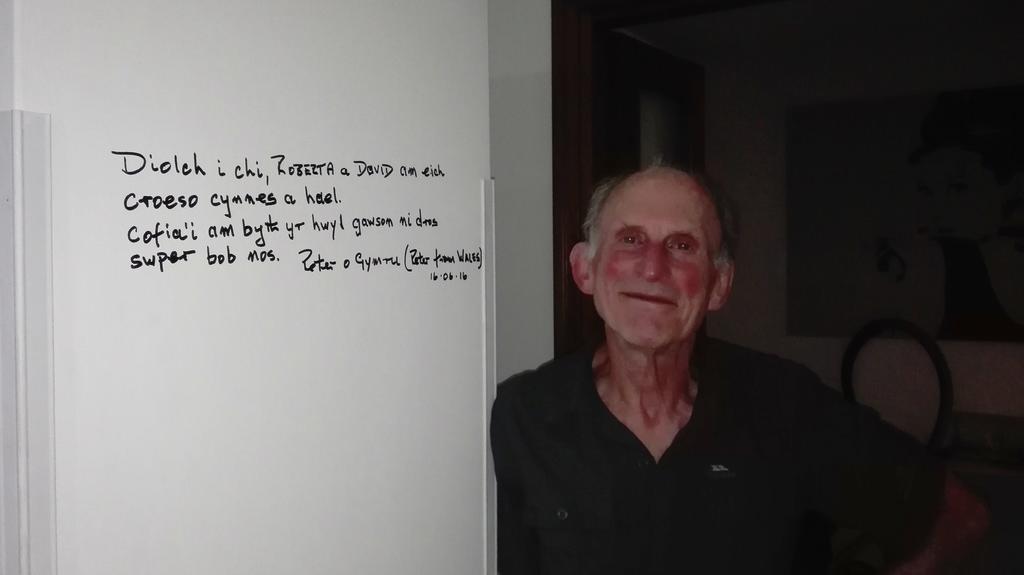 Diolch i chi, ROBERTA a DAVID am eich
croeso cynnes a hael.
Cofia'i am byth yr hwyl gawson ni dros
swper bob nos. Peter o Gymru (Peter from WALES)
16.06.16